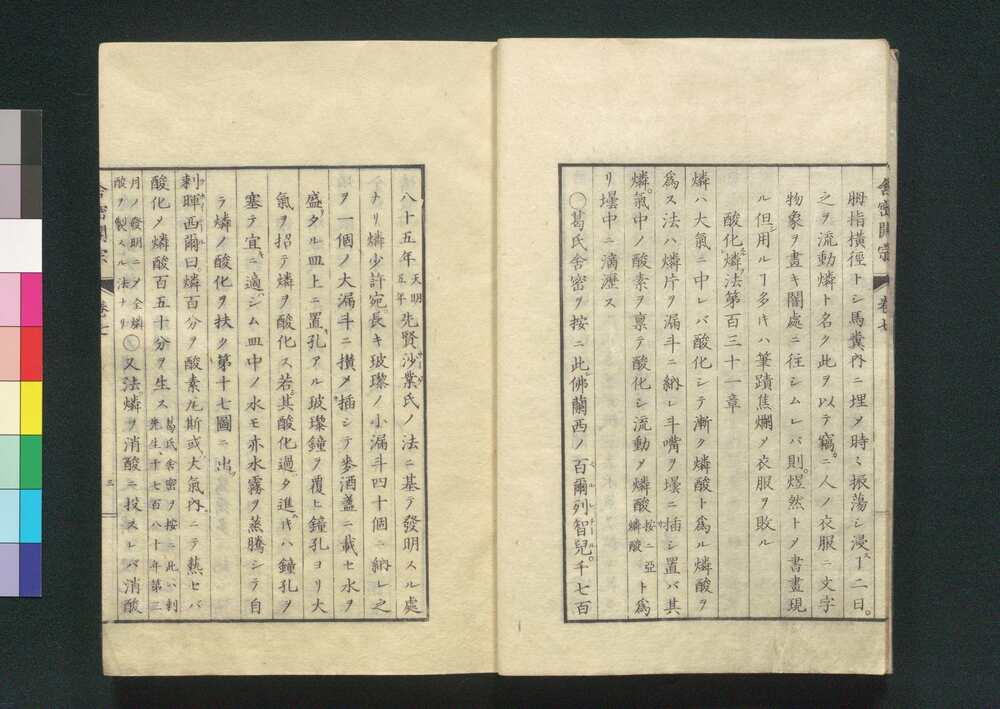 舎密開宗 卷七
拇指横徑トシ馬糞內ニ埋メ時々振蕩シ浸スヿ二日。
之ヲ流動燐ト名ク此ヲ以テ竊ニ人ノ衣服ニ文字
物象ヲ畫キ闇處ニ往シムレバ則。煜然トメ書畫現
ル但シ用ルヿ多キハ筆蹟焦爛メ衣服ヲ敗ル
酸化燐法第百三十一章
燐ハ大氣ニ中レバ酸化シテ漸ク燐酸ト爲ル燐酸ヲ
爲ス法ハ燐片ヲ漏斗ニ納レ斗嘴ヲ壜ニ插シ置バ其
燐。氣中ノ酸素ヲ禀テ酸化シ流動メ燐酸 按ニ亞燐酸 ト爲
リ壜中ニ滴瀝ス
〇葛氏舎密ヲ按ニ此。佛蘭西ノ百爾列智兒。千七百
八十五年 天明五年 先賢沙業氏ノ法ニ基テ發明スル處
ナリ燐少許宛。長キ玻璨ノ小漏斗四十個ニ納レ之
ヲ一個ノ大漏斗ニ攅メ插シテ麥酒盞ニ載セ水ヲ
盛タル皿上ニ置。孔アル玻璨鐘ヲ覆ヒ鐘孔ヨリ大
氣ヲ招テ燐ヲ酸化ス若。其酸化過タ進キハ鐘孔ヲ
塞テ宜ニ適シム皿中ノ水モ亦水霧ヲ蒸騰シテ自
ラ燐ノ酸化ヲ扶ク第十七圖ニ出。
剌暉西爾曰。燐百分ヲ酸素瓦斯或。大氣內ニテ熱セバ
酸化メ燐酸百五十分ヲ生ス 葛氏舎密ヲ按ニ此ハ剌
先生、千七百八十年第三
月ノ發明ニメ全燐
酸ヲ製スル法ナリ 〇又法。燐ヲ消酸ニ投スレバ消酸
舎密開宗 卷七 三